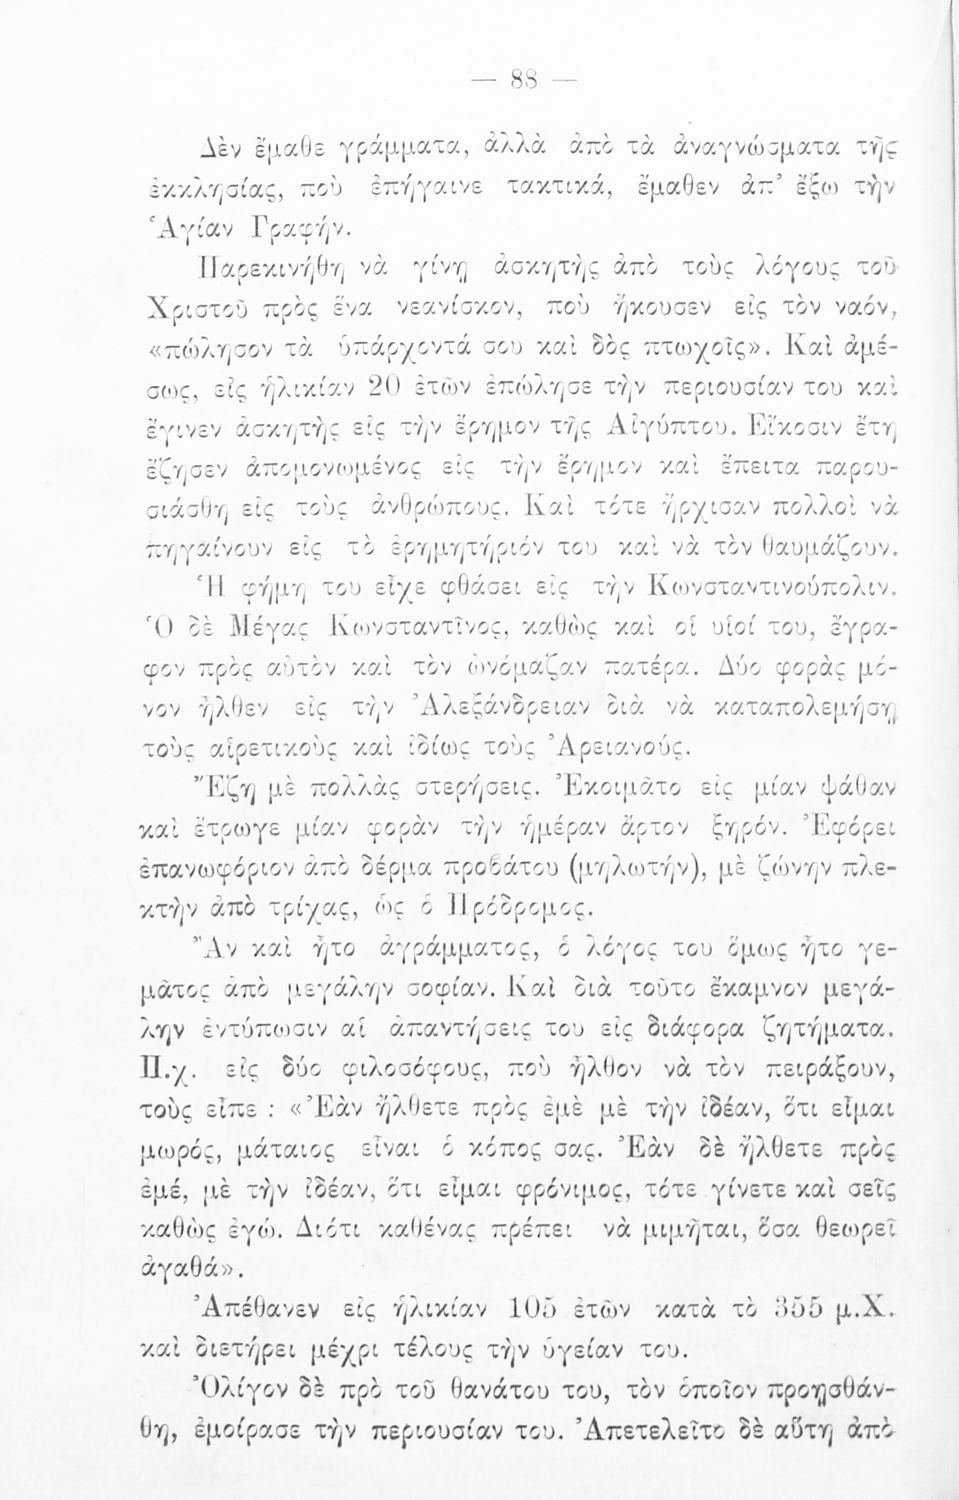 — 88 —
Δὲν ἔμαθε γράμματα, ἀλλὰ ἀπὸ τὰ ἀναγνώσματα τῆς
ἐκκλησίας, ποὺ ἐπήγαινε τακτικά, ἔμαθεν ἀπ’ ἔξω τὴν
Ἁγίαν Γραφήν.
Παρεκινήθη νὰ γίνῃ ἀσκητὴς ἀπὸ τοὺς λόγους τοῦ
Χριστοῦ πρὸς ἕνα νεανίσκον, ποὺ ἤκουσεν εἰς τὸν ναόν,
«πώλησον τὰ ὑπάρχοντά σου καὶ δὸς πτωχοῖς». Καὶ ἀμέ-
σως, εἰς ἡλικίαν 20 ἐτῶν ἐπώλησε τὴν περιουσίαν του καὶ
ἔγινεν ἀσκητὴς εἰς τὴν ἔρημον τῆς Αἰγύπτου. Εἴκοσιν ἔτη
ἔζησεν ἀπομονωμένος εἰς τὴν ἔρημον καὶ ἔπειτα παρου-
σιάσθη εἰς τοὺς ἀνθρώπους. Καὶ τότε ἤρχισαν πολλοὶ νὰ
πηγαίνουν εἰς τὸ ἐρημητήριόν του καὶ νὰ τὸν θαυμάζουν.
Ἡ φήμη του εἶχε φθάσει εἰς τὴν Κωνσταντινούπολιν.
Ὁ δὲ Μέγας Κωνσταντῖνος, καθὼς καὶ οἱ υἱοί του, ἔγρα-
φον πρὸς αὐτὸν καὶ τὸν ὠνόμαζαν πατέρα. Δύο φορὰς μό-
νον ἦλθεν εἰς τὴν Ἀλεξάνδρειαν διὰ νὰ καταπολεμήσῃ
τοὺς αἱρετικοὺς καὶ ἰδίως τοὺς Ἀρειανούς.
Ἔζη μὲ πολλὰς στερήσεις. Ἐκοιμᾶτο εἰς μίαν ψάθαν
καὶ ἔτρωγε μίαν φορὰν τὴν ἡμέραν ἄρτον ξηρόν. Ἐφόρει
ἐπανωφόριον ἀπὸ δέρμα προϐάτου (μηλωτήν), μὲ ζώνην πλε-
κτὴν ἀπὸ τρίχας, ὡς ὁ Πρόδρομος.
Ἂν καὶ ἦτο ἀγράμματος, ὁ λόγος του ὅμως ἦτο γε-
μᾶτος ἀπὸ μεγάλην σοφίαν. Καὶ διὰ τοῦτο ἔκαμνον μεγά-
λην ἐντύπωσιν αἱ ἀπαντήσεις του εἰς διάφορα ζητήματα.
Π.χ. εἰς δύο φιλοσόφους, ποὺ ἦλθον νὰ τὸν πειράξουν,
τοὺς εἶπε : «Ἐὰν ἤλθετε πρὸς ἐμὲ μὲ τὴν ἰδέαν, ὅτι εἶμαι
μωρός, μάταιος εἶναι ὁ κόπος σας. Ἐὰν δὲ ἤλθετε πρὸς
ἐμέ, μὲ τὴν ἰδέαν, ὅτι εἶμαι φρόνιμος, τότε γίνετε καὶ σεῖς
καθὼς ἐγώ. Διότι καθένας πρέπει νὰ μιμῆται, ὅσα θεωρεῖ
ἀγαθά».
Ἀπέθανεν εἰς ἡλικίαν 105 ἐτῶν κατὰ τὸ 355 μ.Χ.
καὶ διετήρει μέχρι τέλους τὴν ὑγείαν του.
Ὀλίγον δὲ πρὸ τοῦ θανάτου του, τὸν ὁποῖον προῃσθάν-
θη, ἐμοίρασε τὴν περιουσίαν του. Ἀπετελεῖτο δὲ αὕτη ἀπὸ